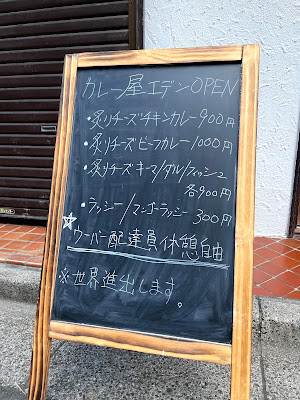 カレー屋エデンOPEN
・炙りチーズチキンカレー900円
・炙りチーズビーフカレー1000円
・炙りチーズキーマ/ダル/フィッシュ
各900円
・ラッシー/マンゴーラッシー300円
☆ウーバー配達員休憩自由
※世界進出します。